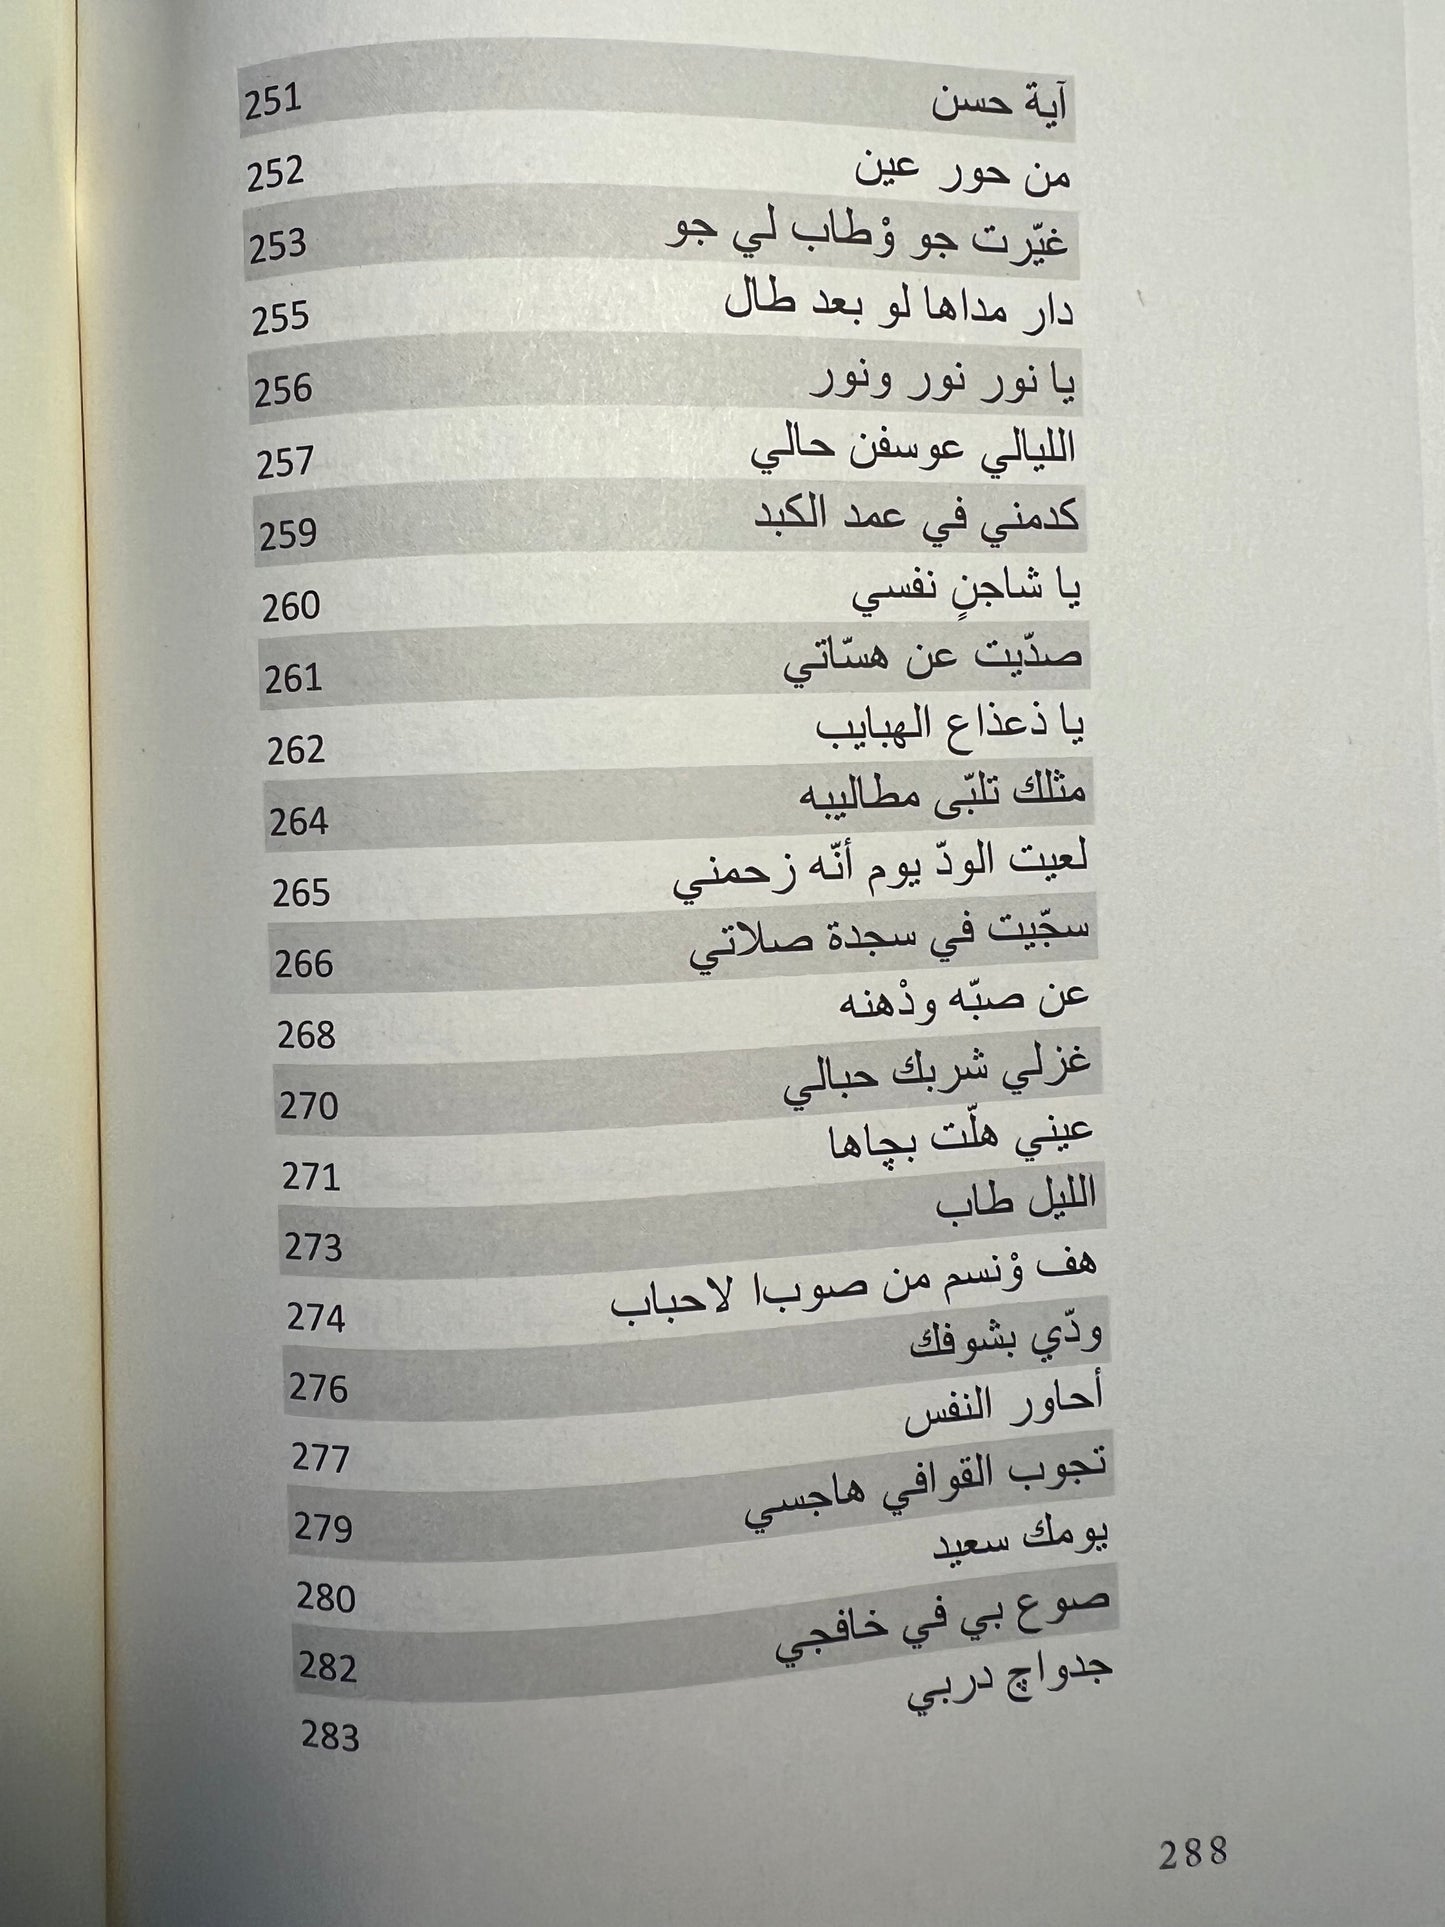 آية حسن 251
من حور عين 252
غيّرت جو وْطاب لي جو 253
دار مداها لو بعد طال 255
يا نور نور ونور 256
الليالي عوسفن حالي 257
كدمني في عمد الكبد 259
يا شاجنٍ نفسي 260
صدّيت عن هسّاتي 261
يا ذعذاع الهبايب 262
مثلك تلبّى مطاليبه 264
لعيت الودّ يوم أنّه زحمني 265
سجّيت في سجدة صلاتي 266
عن صبّه وذْهنه 268
غزلي شربك حبالي 270
عيني هلّت بچاها 271
الليل طاب 273
هف وْنسم من صوب‌ا لاحباب 274
ودّي بشوفك 276
أحاور النفس 277
تجوب القوافي هاجسي 279
يومك سعيد 280
صوع بي في خافجي 282
جدواچ دربي 283
288